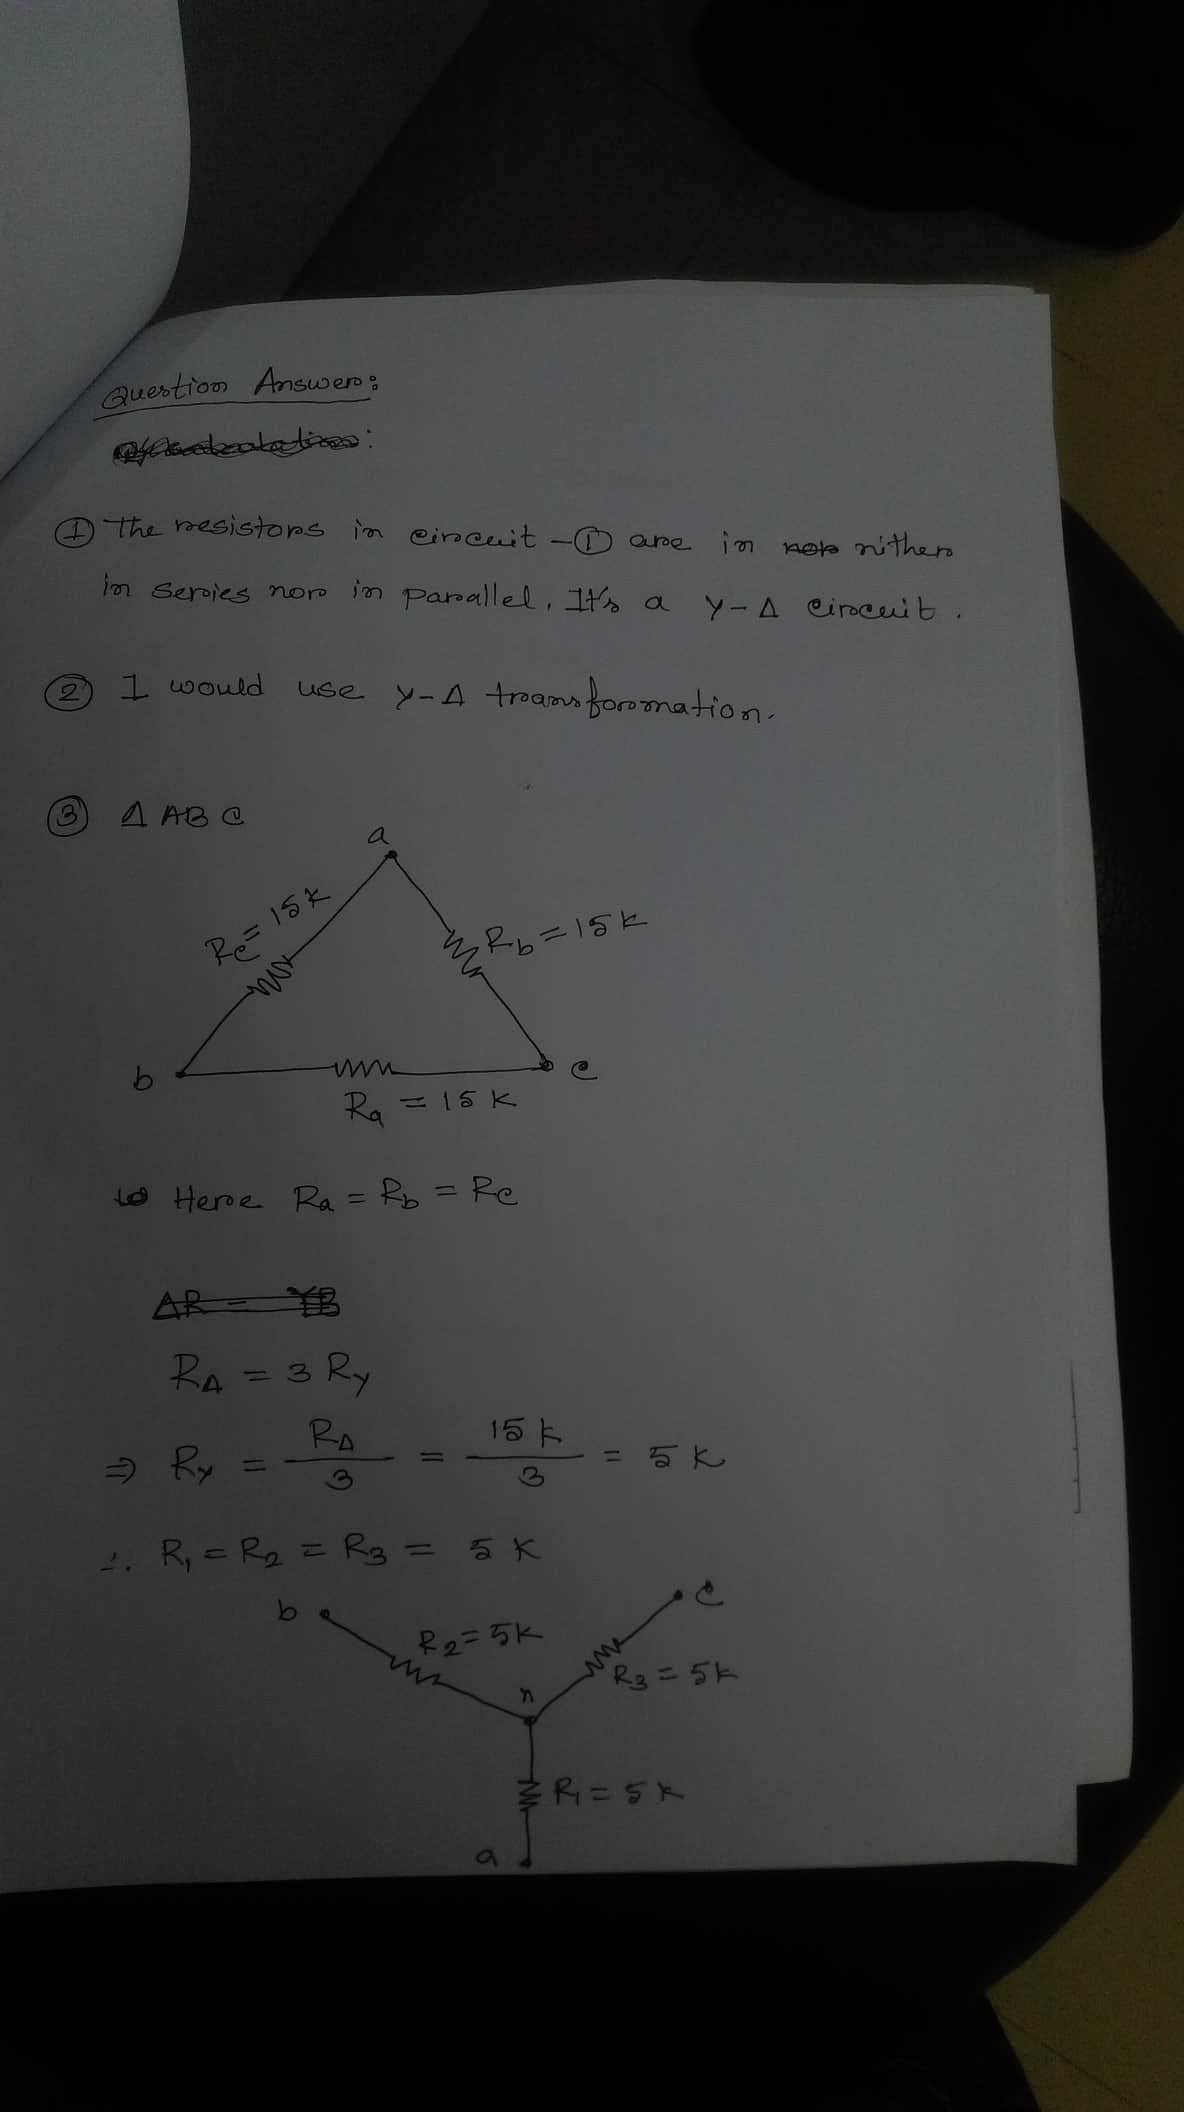 Question Answer:
① The resistors in circuit - ① are in nither
in series nor in parallel. It's a Y-Δ circuit.
② I would use Y-Δ transformation.
③ Δ ABC
a
Rc = 15k
Rb = 15k
b
c
Ra = 15k
Here Ra = Rb = Rc
RΔ = 3 RY
⇒ RY = RΔ/3 = 15k/3 = 5k
∴ R1 = R2 = R3 = 5k
b
c
R2 = 5k
R3 = 5k
n
R1 = 5k
a